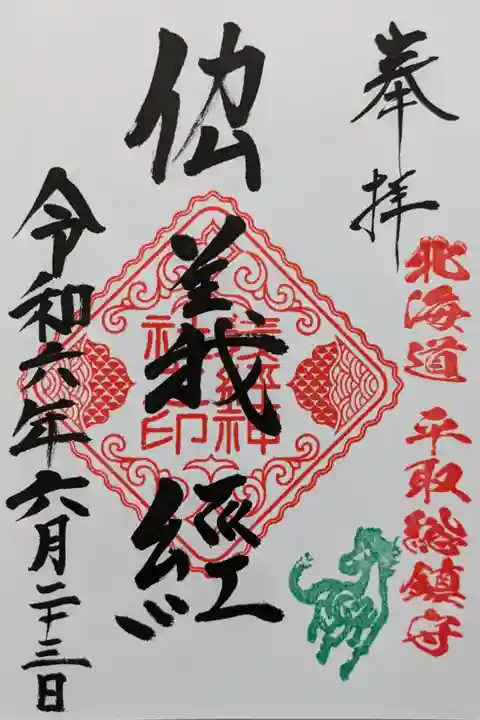 奉拝
北海道 平取総鎮守
義經
義経神
社之印
令和六年六月二十三日